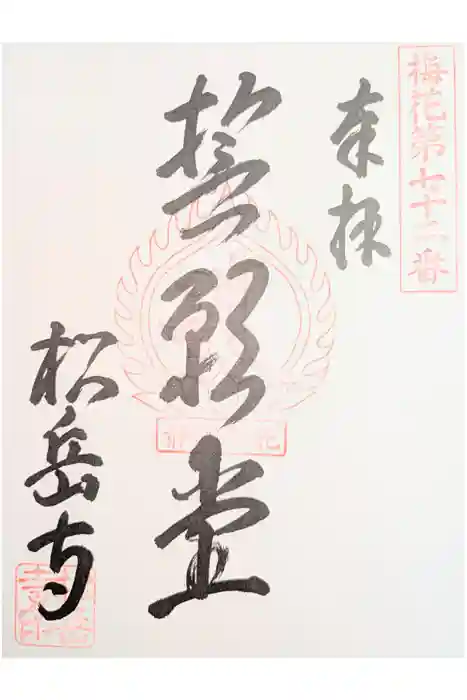 梅花第七十二番
奉拝
誓願堂
松岳寺